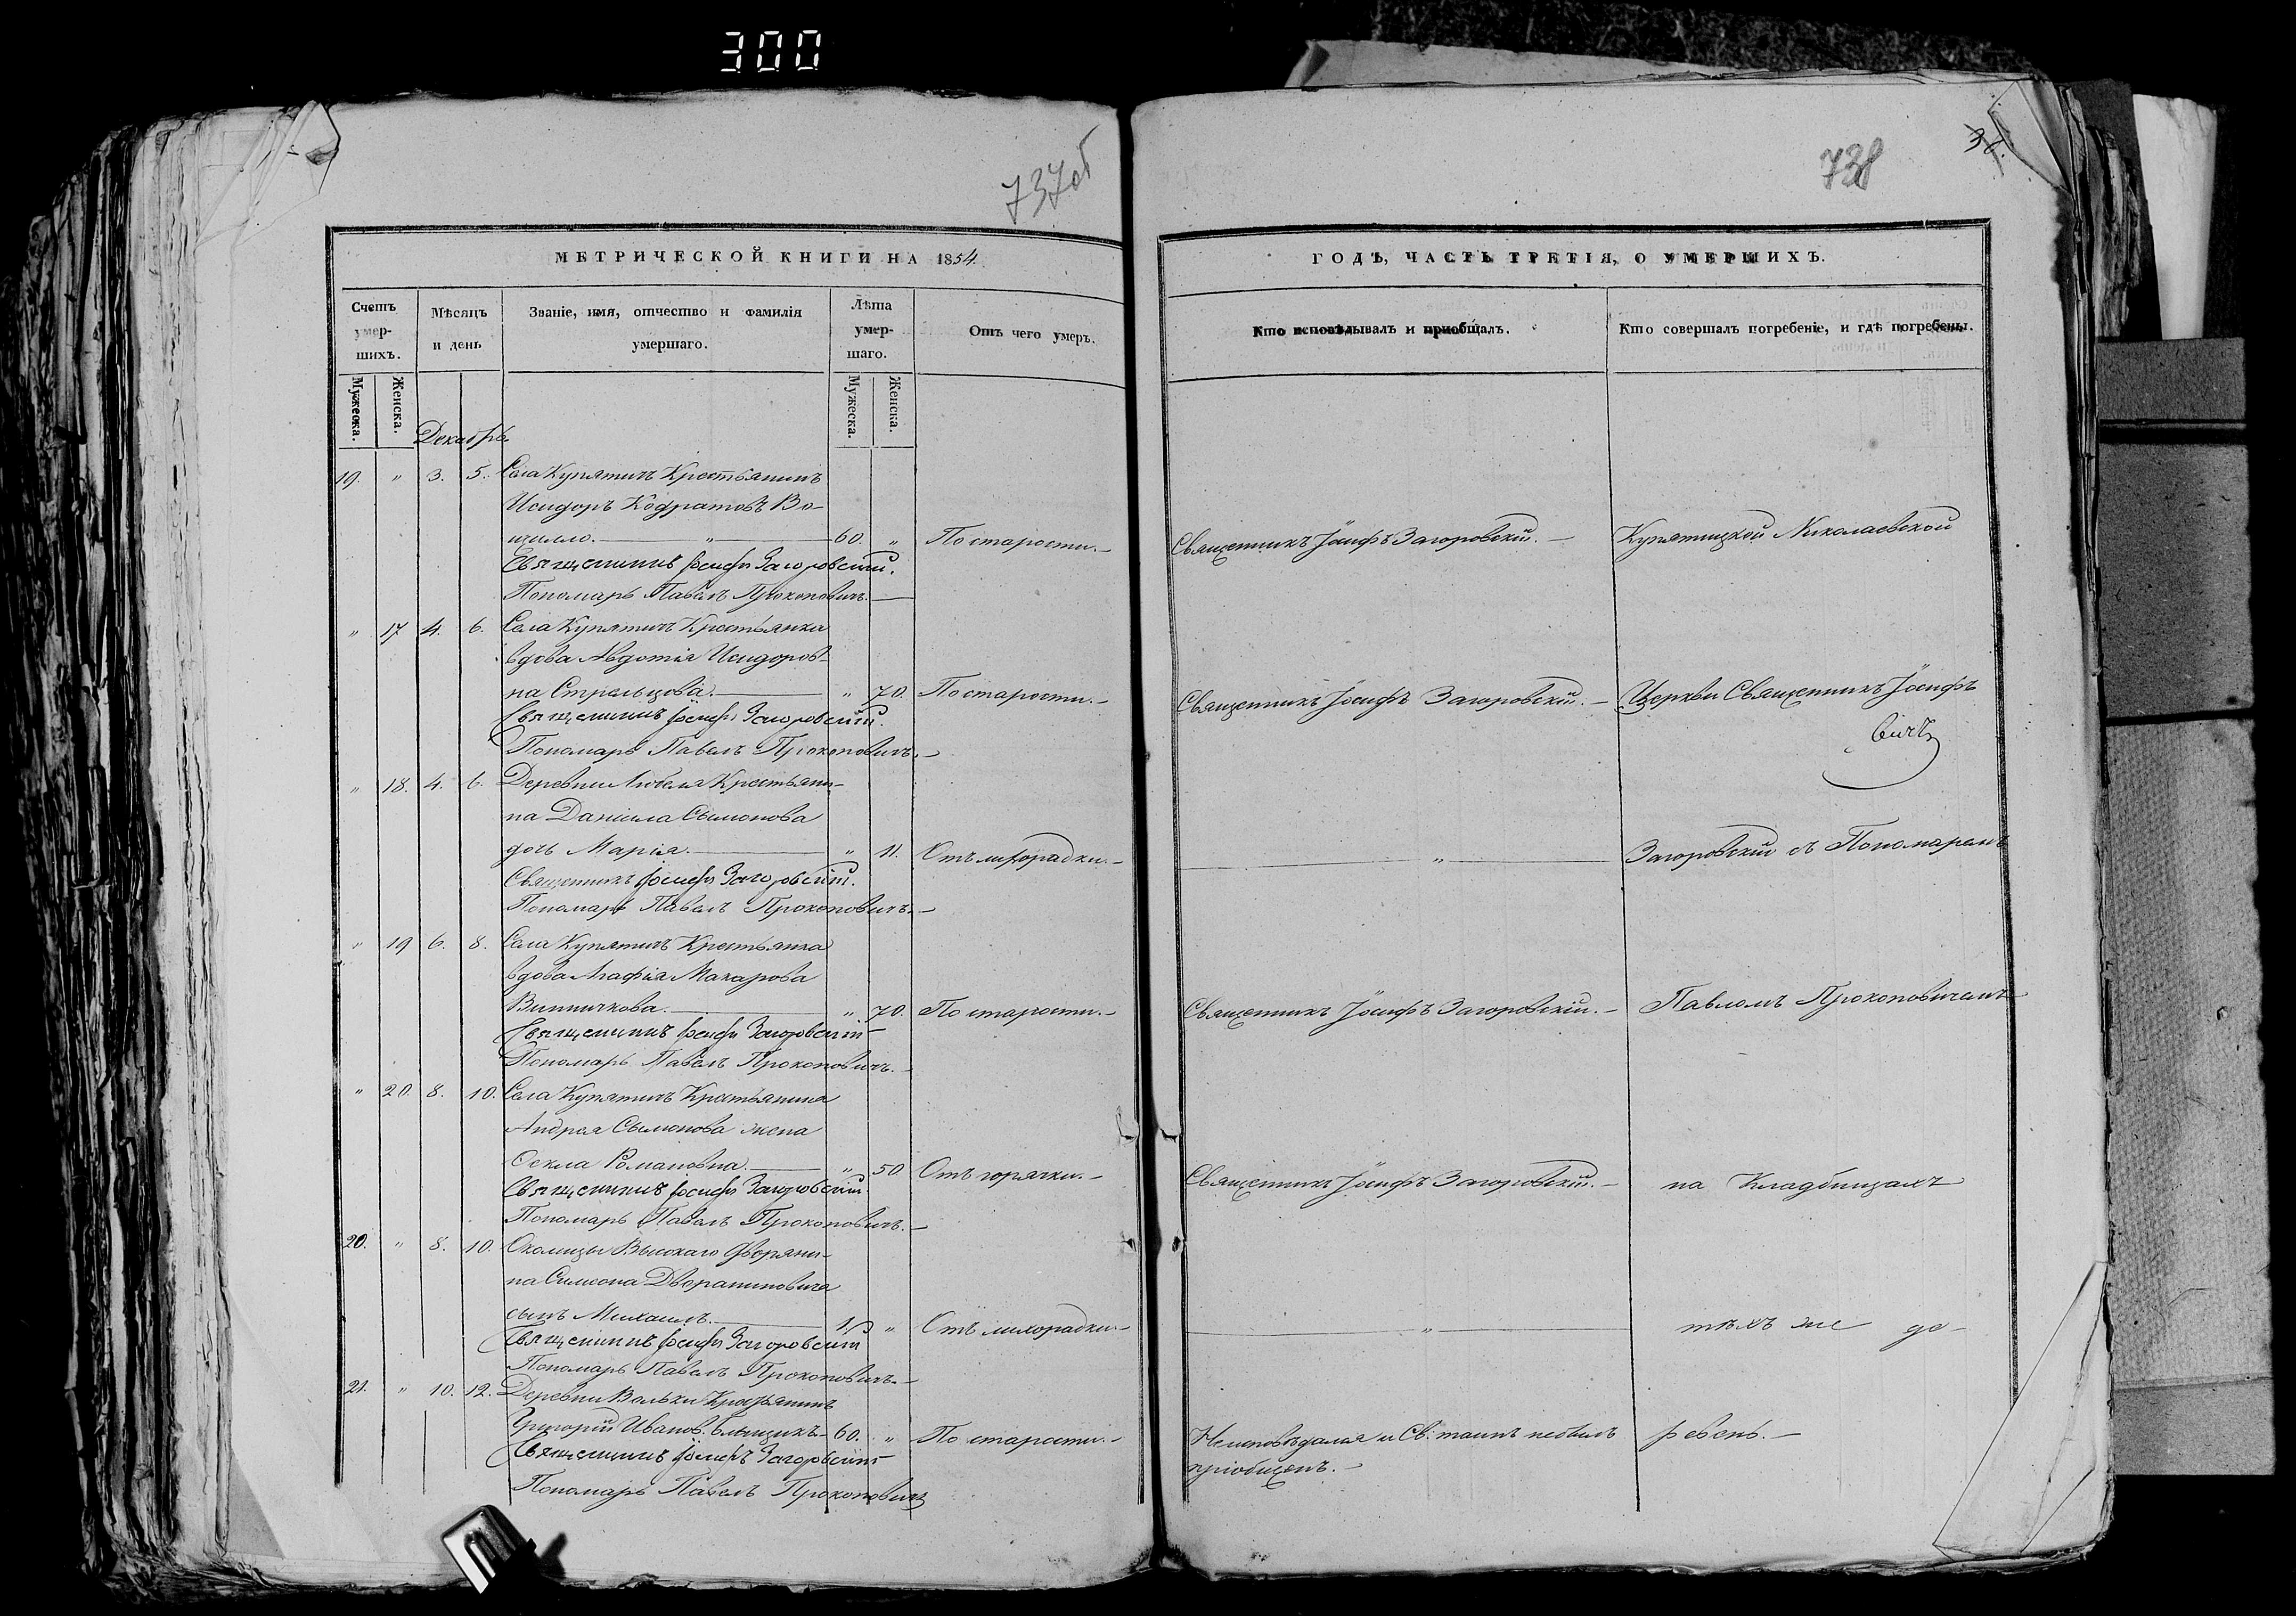 300
737об
МЕТРИЧЕСКОЙ КНИГИ НА 1854.
Счетъ умер-шихъ.
Мѣсяцъ и день
Званіе, имя, отчество и фамилія умершаго.
Лѣта умер-шаго.
Отъ чего умеръ.
Мужеска.
Женска.
Мужеска.
Женска.
Декабрь
19. " 3. 5. Села Купятичъ Крестьянинъ
Исидоръ Кодратовъ Во-
60. " По старости.
Священникъ Іосифъ Загоровскій.
Пономарь Павелъ Прокоповичъ.
" 17 4. 6. Села Купятичъ Крестьянка
вдова Авдотія Исидоров-
на Стрельцова. " 70. По старости.
Священникъ Іосифъ Загоровскій.
Пономарь Павелъ Прокоповичъ.
" 18. 4. 6. Деревни Любеля Крестьяни-
на Даніила Сымонова
дочь Марія. " 11. Отъ лихорадки.
Священникъ Іосифъ Загоровскій.
Пономарь Павелъ Прокоповичъ.
" 19 6. 8. Села Купятичъ Крестьянка
вдова Агафія Макарова
Винничкова. " 70. По старости.
Священникъ Іосифъ Загоровскій
Пономарь Павелъ Прокоповичъ.
" 20. 8. 10. Села Купятичъ Крестьянина
Андрея Сымонова жена
Ѳекла Романовна. " 50. Отъ горячки.
Священникъ Іосифъ Загоровскій
Пономарь Павелъ Прокоповичъ.
20. " 8. 10. Околицы Высокаго Дворяни-
на Симеона Дворяниновича
сынъ Михаилъ. " Отъ лихорадки.
Священникъ Іосифъ Загоровскій
Пономарь Павелъ Прокоповичъ.
21. " 10. 12. Деревни Вальки Крестьянинъ
Григорій Иванов. 60. " По старости.
Священникъ Іосифъ Загоровскій
Пономарь Павелъ Прокоповичъ
738
ГОДѢ, ЧАСТЬ ТРЕТІЯ, О УМЕРШИХЪ.
Кто исповѣдывалъ и пріобщалъ.
Кто совершалъ погребеніе, и гдѣ погребены.
Священникъ Іосифъ Загоровскій. Купятицкой Николаевской
Священникъ Іосифъ Загоровскій. Церкви Священникъ Іосифъ
вичъ
" Загоровскій съ Пономаремъ
Священникъ Іосифъ Загоровскій. Павломъ Прокоповичемъ
Священникъ Іосифъ Загоровскій. на Кладбищахъ
" тѣхъ же де-
Неисповѣдался и Св: таинъ небылъ ревень.
пріобщенъ.